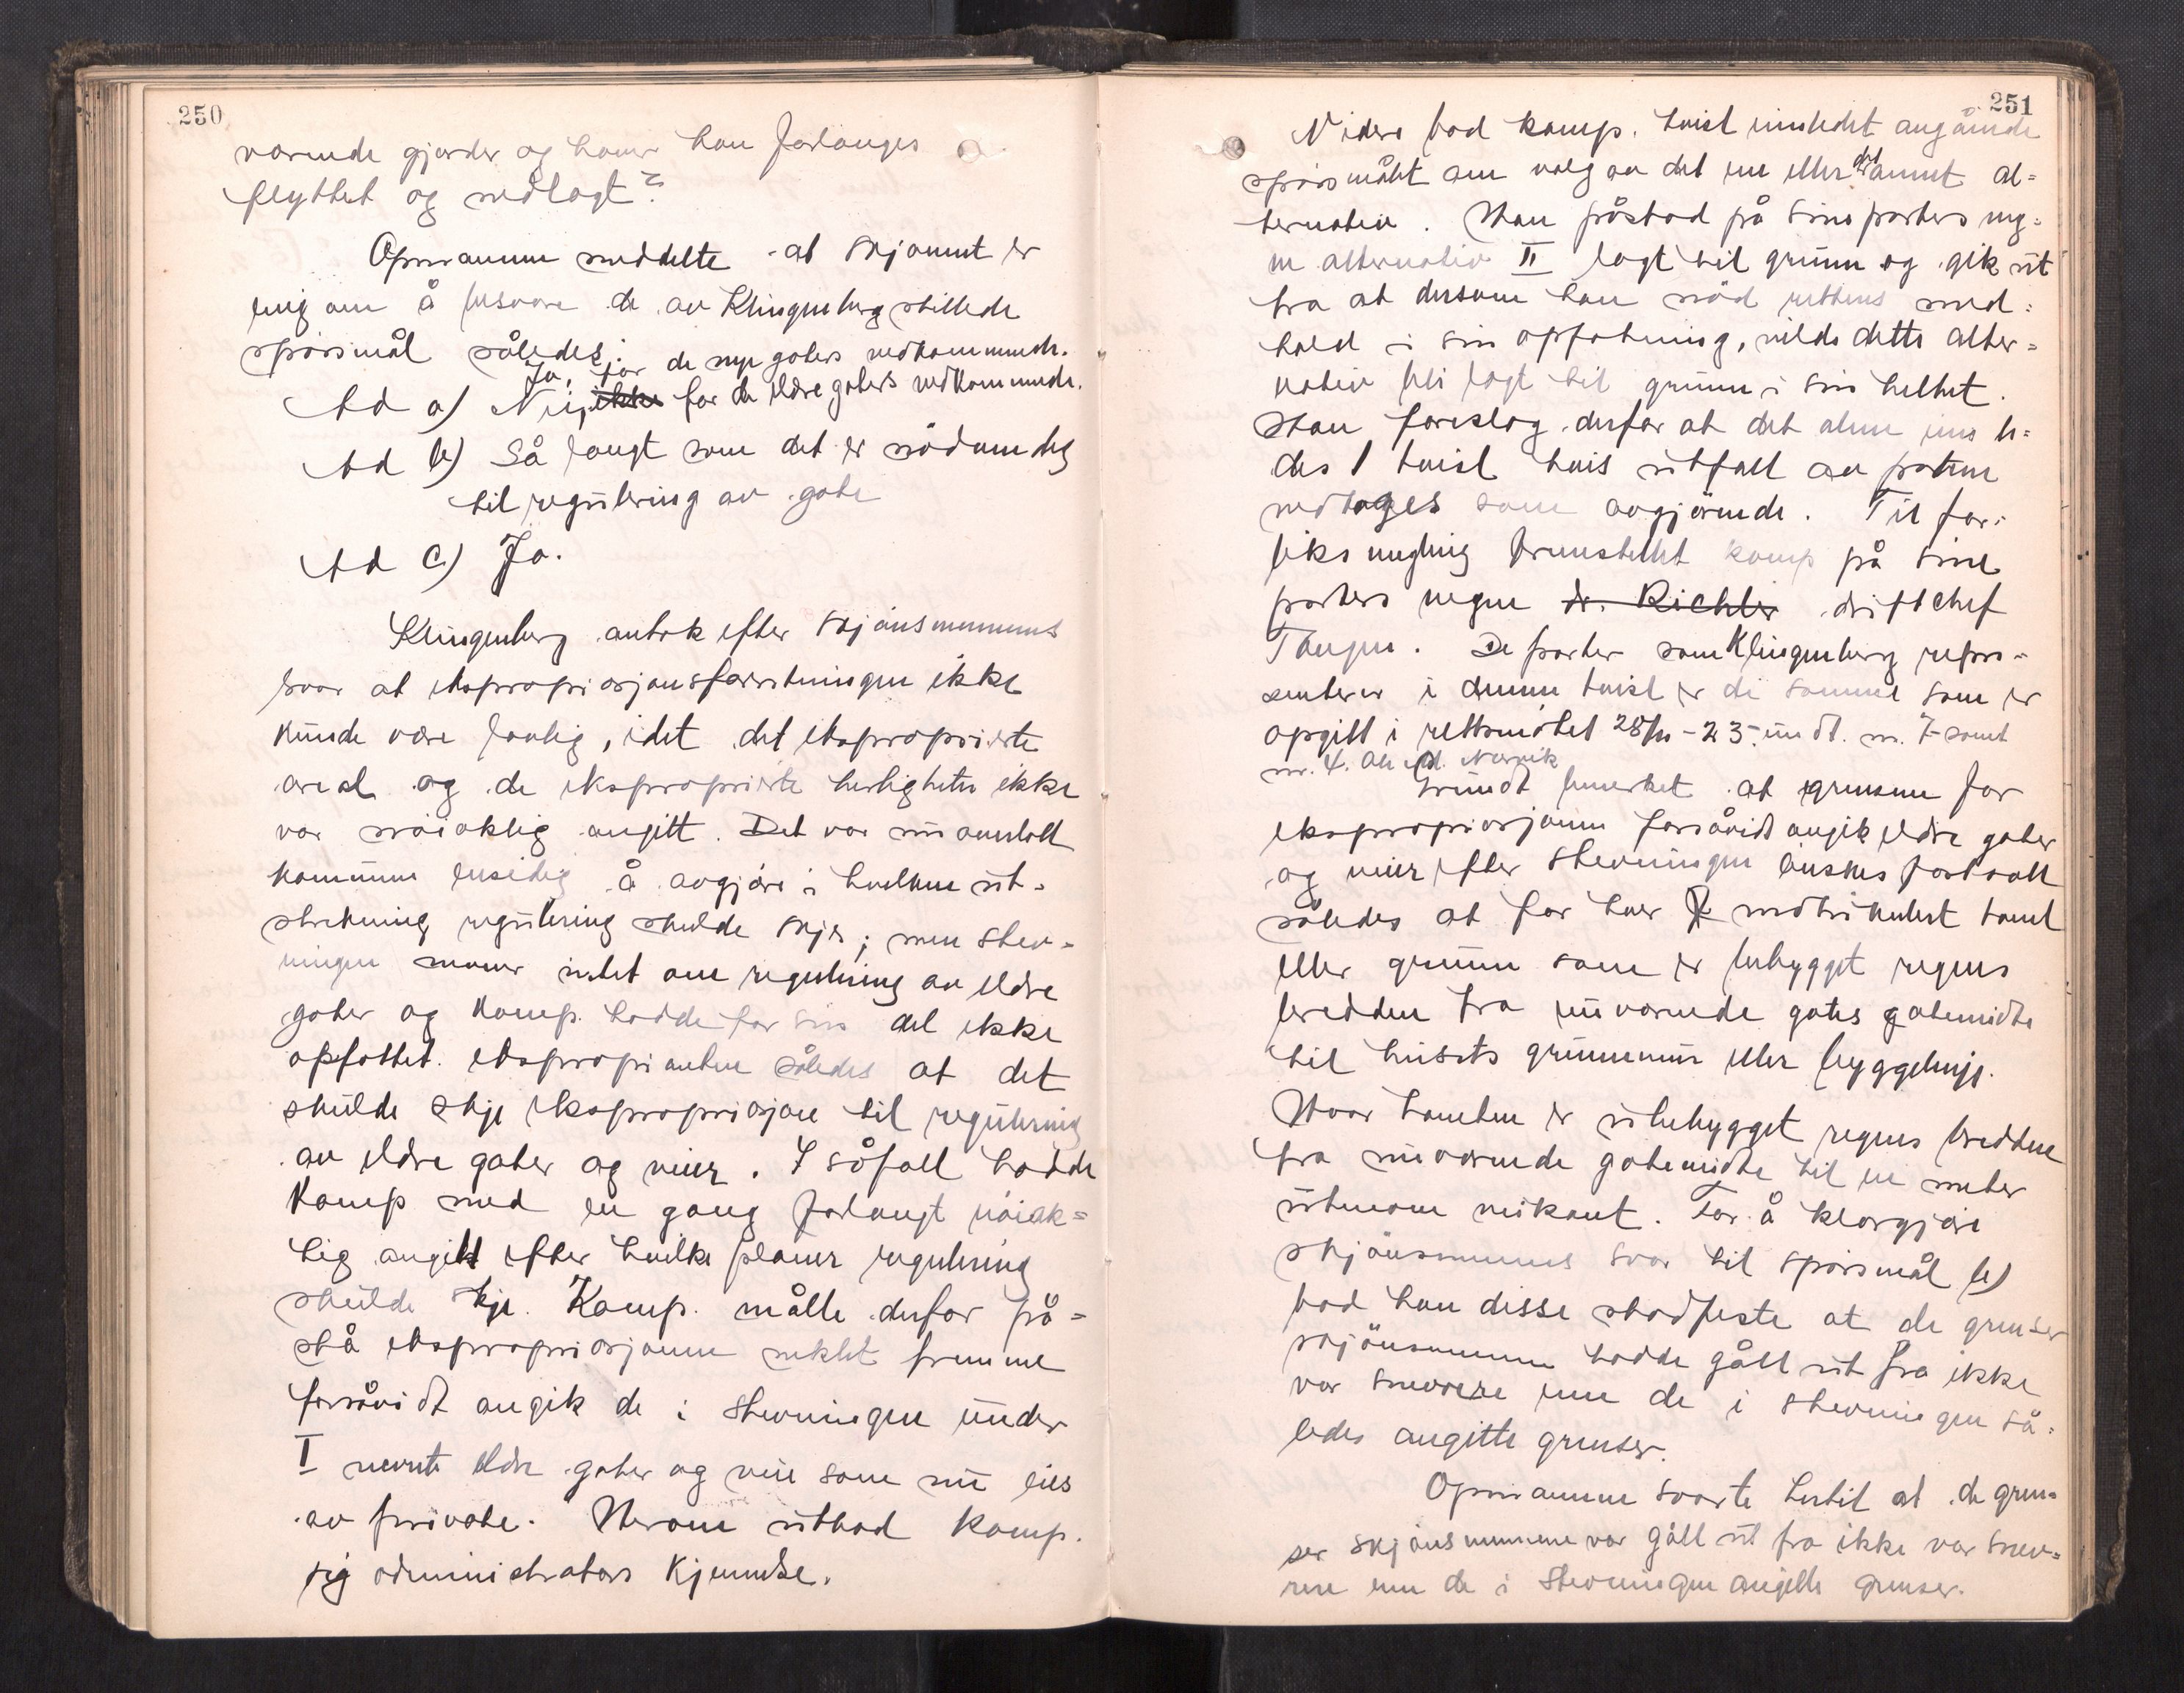 250
værende gjærder og haver kan forlanges
flyttet og nedlagt?
Opmannen meddelte at skjønnet er
enig om å besvare de av Klingenberg stillede
spørsmål således:
Ja, for de nye gaters vedkommende.
Ad a) Nei, ikke for de eldre gaters vedkommende.
Ad b) Så langt som det er nødvendig
til regulering av gate
Ad c) Ja.
Klingenberg antok efter skjønsmennenes
svar at ekspropriasjonsforretningen ikke
kunde være lovlig, idet det eksproprierte
areal og de eksproprierte herligheter ikke
var nøiaktig angitt. Det var nu overlatt
kommunen ensidig å avgjøre i hvilken ut-
strekning regulering skulde skje; men stev-
ningen nevner intet om regulering av eldre
gater og Komp. hadde for sin del ikke
opfattet ekspropriantene således at det
skulde skje ekspropriasjon til regulering
av eldre gater og veier. I såfall hadde
Komp med en gang forlangt nøiak=
tig angitt efter hvilke planer regulering
skulde skje. Komp. måtte derfor på=
stå ekspropriasjonen nektet fremme
forsåvidt angik de i stevningen under
I nevnte eldre gater og veie som nu eies
av private. Herom utbad Komp.
sig administrators kjennelse.
251
Videre bad Komp. tvist innledet angående
spørsmålet om valg av det ene eller det annet al=
ternativ. Han påstod på sine parters veg=
ne alternativ II lagt til grunn og gik ut
fra at dersom han nød rettens med=
hold i sin opfatning, vilde dette alter=
nativ bli lagt til grunn i sin helhet.
Han foreslog derfor at det alene inn le=
des 1 tvist hvis utfall av partene
vedtages som avgjørende. Til for=
liksmegling fremstillet komp på sine
parters vegne dr. Richter driftschef
Thingen. De parter som Klingenberg repre-
senterer i denne tvist er de samme som er
opgitt i rettsmøtet 28/11-23 undt. nr. 7 samt
nr. 4. A/S Narvik
Grundt bemerket at grensene for
ekspropriasjonen forsåvidt angik eldre gater
og veier efter stevningen ønskes fastsatt
således at for hver matrikulert tomt
eller grunn som er bebygget regnes
bredden fra nuværende gates gatemidte
til husets grunnmur eller byggelinje.
Hvor tomten er ubebygget regnes bredden
fra nuværende gatemidte til en meter
utenom veikant. For å klargjøre
skjønsmennenes svar til spørsmål b)
bad han disse stadfeste at de grenser
skjønsmennene hadde gått ut fra ikke
var snevrere enn de i stevningen så-
ledes angitte grenser.
Opmannen svarte hertil at de gren=
ser skjønsmennene var gått ut fra ikke var snev=
rere enn de i stevningen angitte grenser.